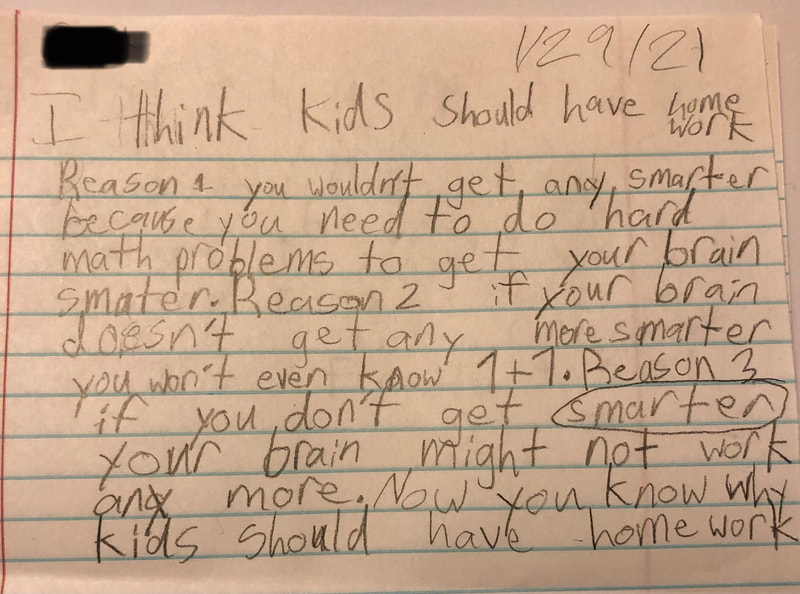 1/29/21
I think kids should have home work
Reason 1 you wouldn't get any smarter
because you need to do hard
math problems to get your brain
smater. Reason 2 if your brain
doesn't get any more smarter
you won't even know 1+1. Reason 3
if you don't get smarter
your brain might not work
any more. Now you know why
kids should have home work